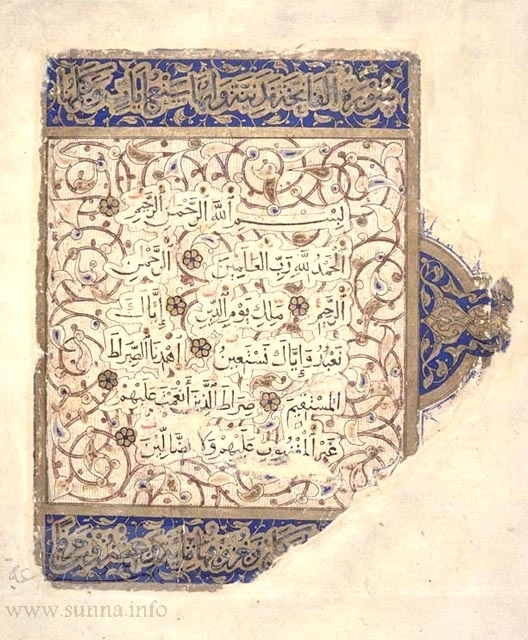 سورة الفاتحة مدنية وهي سبع آيات
بسم الله الرحمن الرحيم
الحمد لله رب العالمين الرحمن
الرحيم ملك يوم الدين إياك
نعبد وإياك نستعين اهدنا الصراط
المستقيم صراط الذين أنعمت عليهم
غير المغضوب عليهم ولا الضالين
www.sunna.info